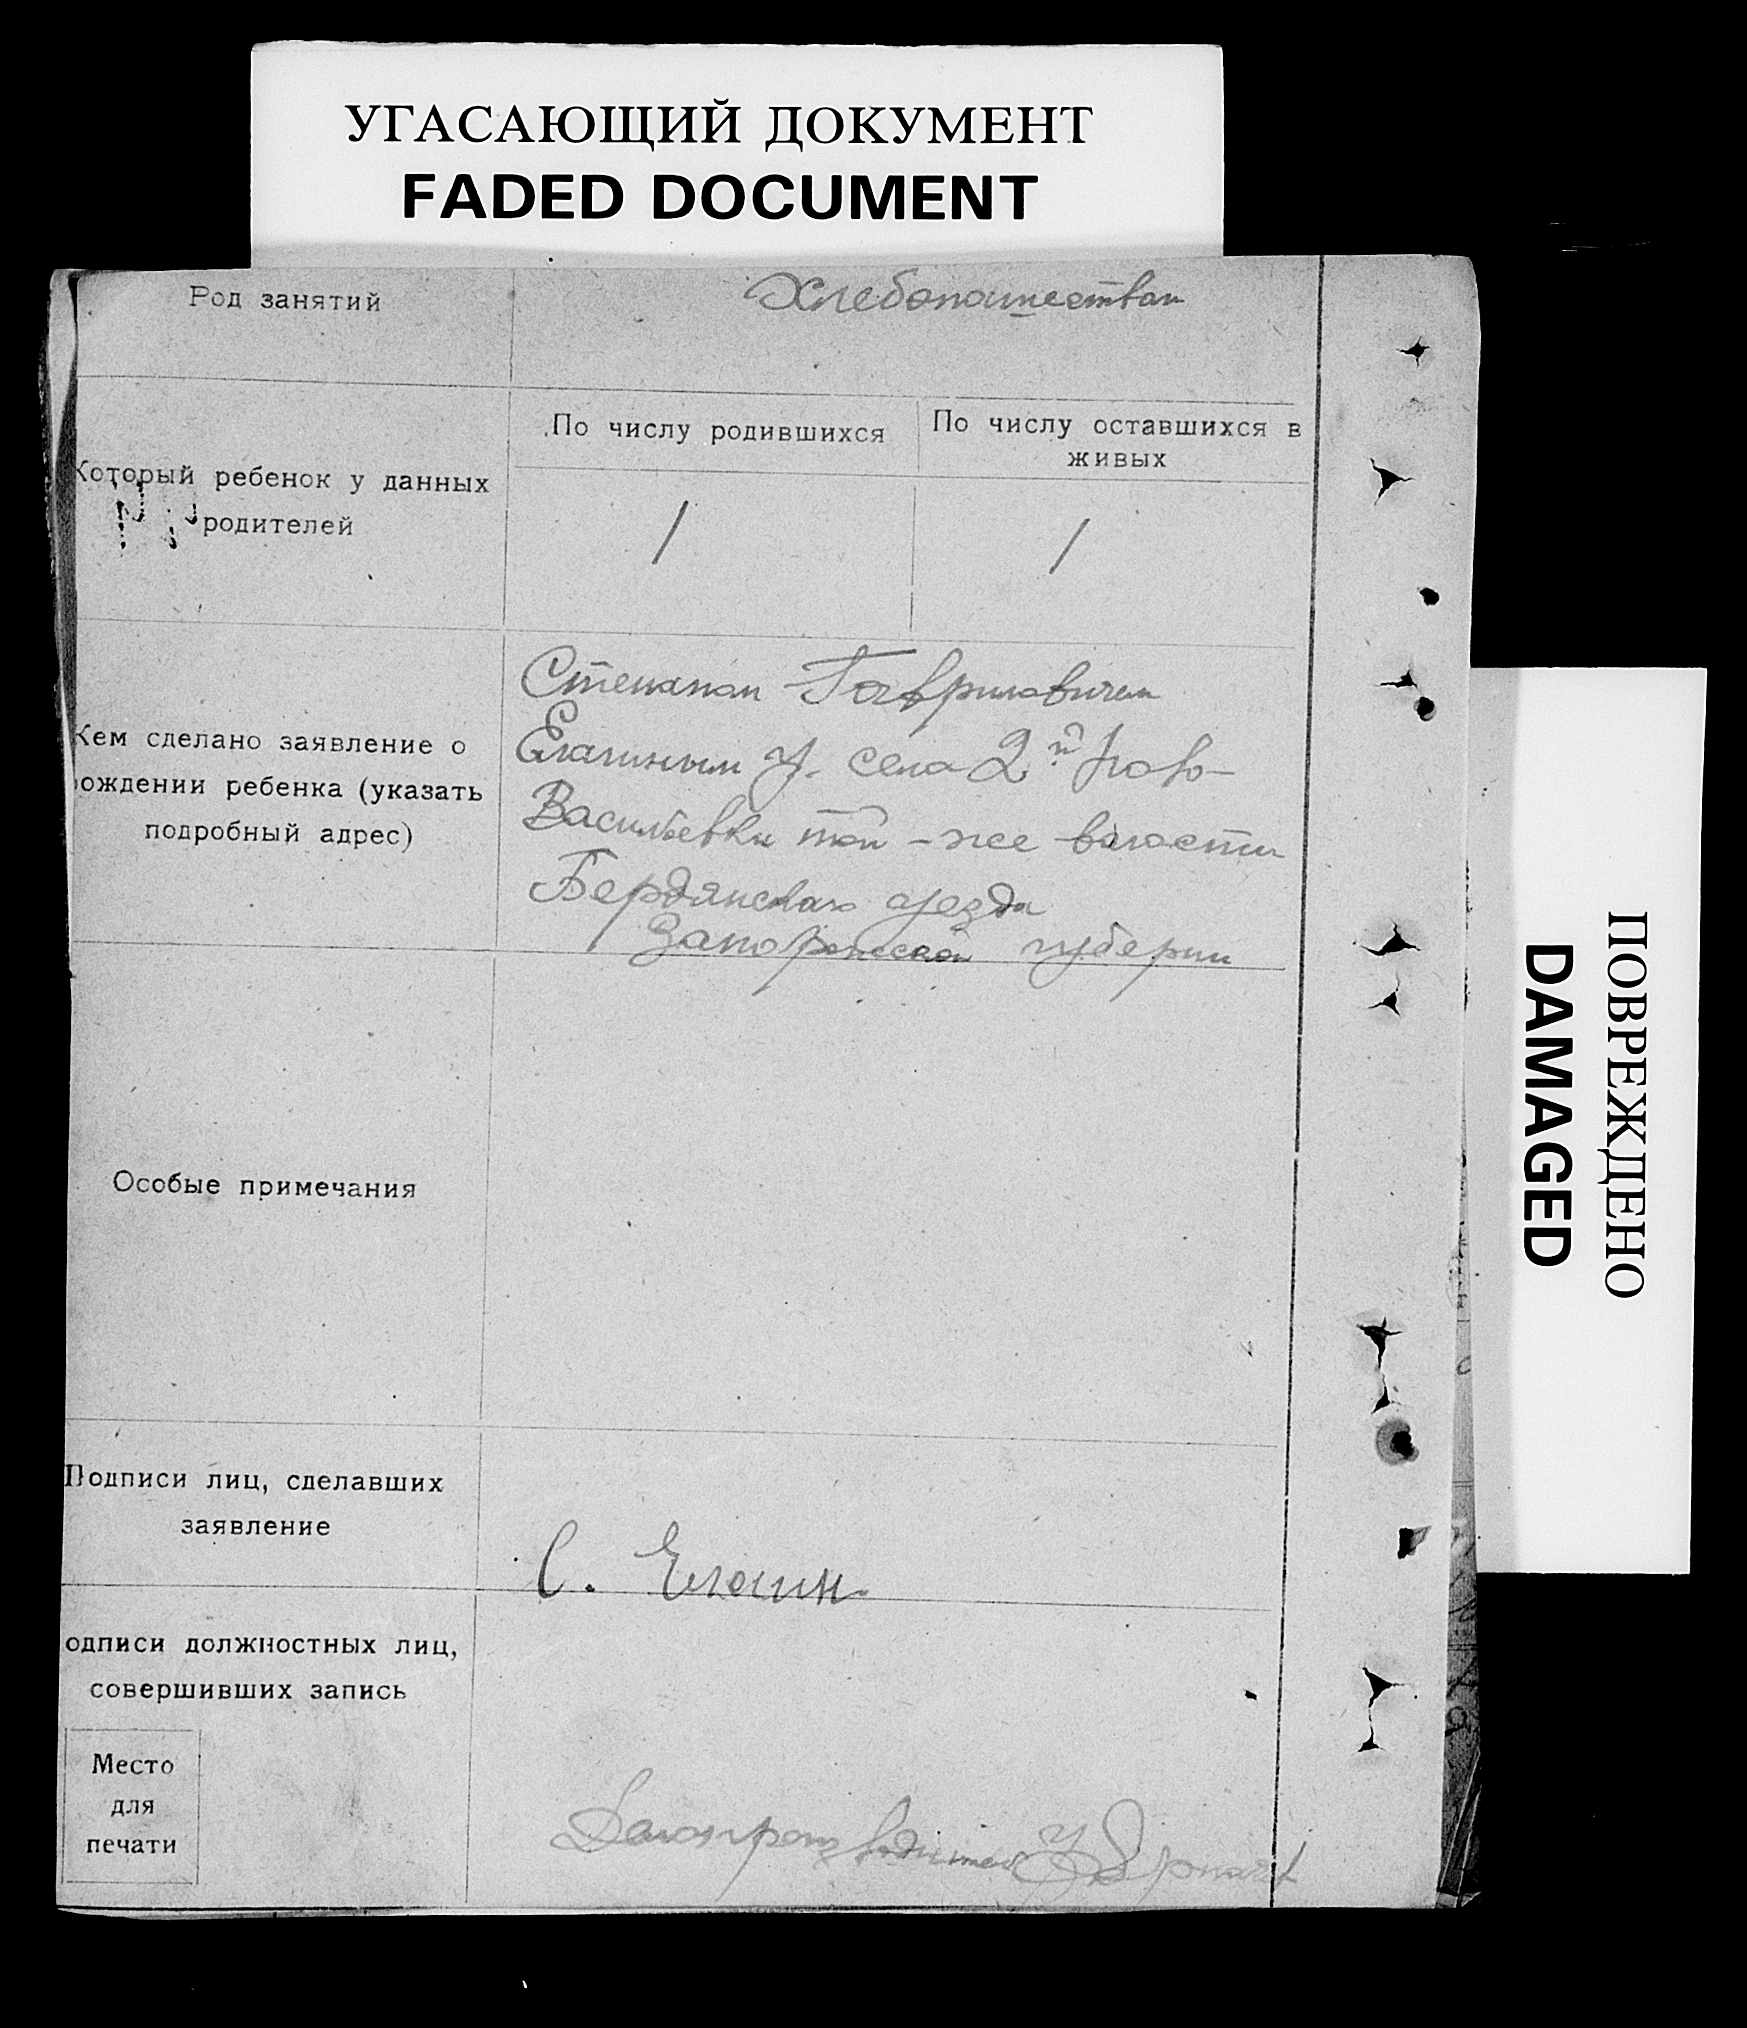 УГАСАЮЩИЙ ДОКУМЕНТ
FADED DOCUMENT
Род занятий
Хлебопашеством
По числу родившихся
По числу оставшихся в
живых
Который ребенок у данных
родителей
1
1
Кем сделано заявление о
рождении ребенка (указать
подробный адрес)
Степаном Гавриловичем
Елагиным У. села 2й Ново-
Васильевки той-же волости
Бердянскаго уезда
Запорожской губернии
Особые примечания
Подписи лиц, сделавших
заявление
С. Елагин
одписи должностных лиц,
совершивших запись
Место
для
печати
Делопроизводитель
ПОВРЕЖДЕНО
DAMAGED